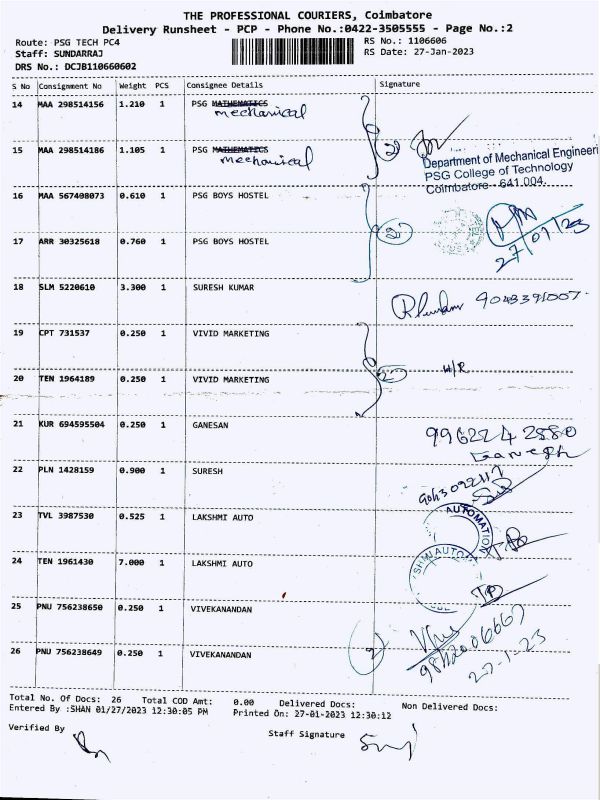 THE PROFESSIONAL COURIERS, Coimbatore
Delivery Runsheet - PCP - Phone No.:0422-3505555 - Page No.:2
Route: PSG TECH PC4
RS No.: 1106606
Staff: SUNDARRAJ
RS Date: 27-Jan-2023
DRS No.: DCJB110660602
S No Consignment No Weight PCS Consignee Details Signature
14 MAA 298514156 1.210 1 PSG MATHEMATICS
mechanical
15 MAA 298514186 1.105 1 PSG MATHEMATICS
mechanical
2
Department of Mechanical Engineeri
PSG College of Technology
Coimbatore - 641 004.
16 MAA 567408073 0.610 1 PSG BOYS HOSTEL
2
17 ARR 30325618 0.760 1 PSG BOYS HOSTEL
27/01/23
18 SLM 5220610 3.300 1 SURESH KUMAR
19 CPT 731537 0.250 1 VIVID MARKETING
20 TEN 1964189 0.250 1 VIVID MARKETING
2
21 KUR 694595504 0.250 1 GANESAN
996224 2580
Ganesh
22 PLN 1428159 0.900 1 SURESH
23 TVL 3987530 0.525 1 LAKSHMI AUTO
AUTOMATION
24 TEN 1961430 7.000 1 LAKSHMI AUTO
SHMI AUTO
25 PNU 756238650 0.250 1 VIVEKANANDAN
26 PNU 756238649 0.250 1 VIVEKANANDAN
2
27-1-23
Total No. Of Docs: 26 Total COD Amt: 0.00 Delivered Docs: Non Delivered Docs:
Entered By :SHAN 01/27/2023 12:30:05 PM Printed On: 27-01-2023 12:30:12
Verified By
Staff Signature